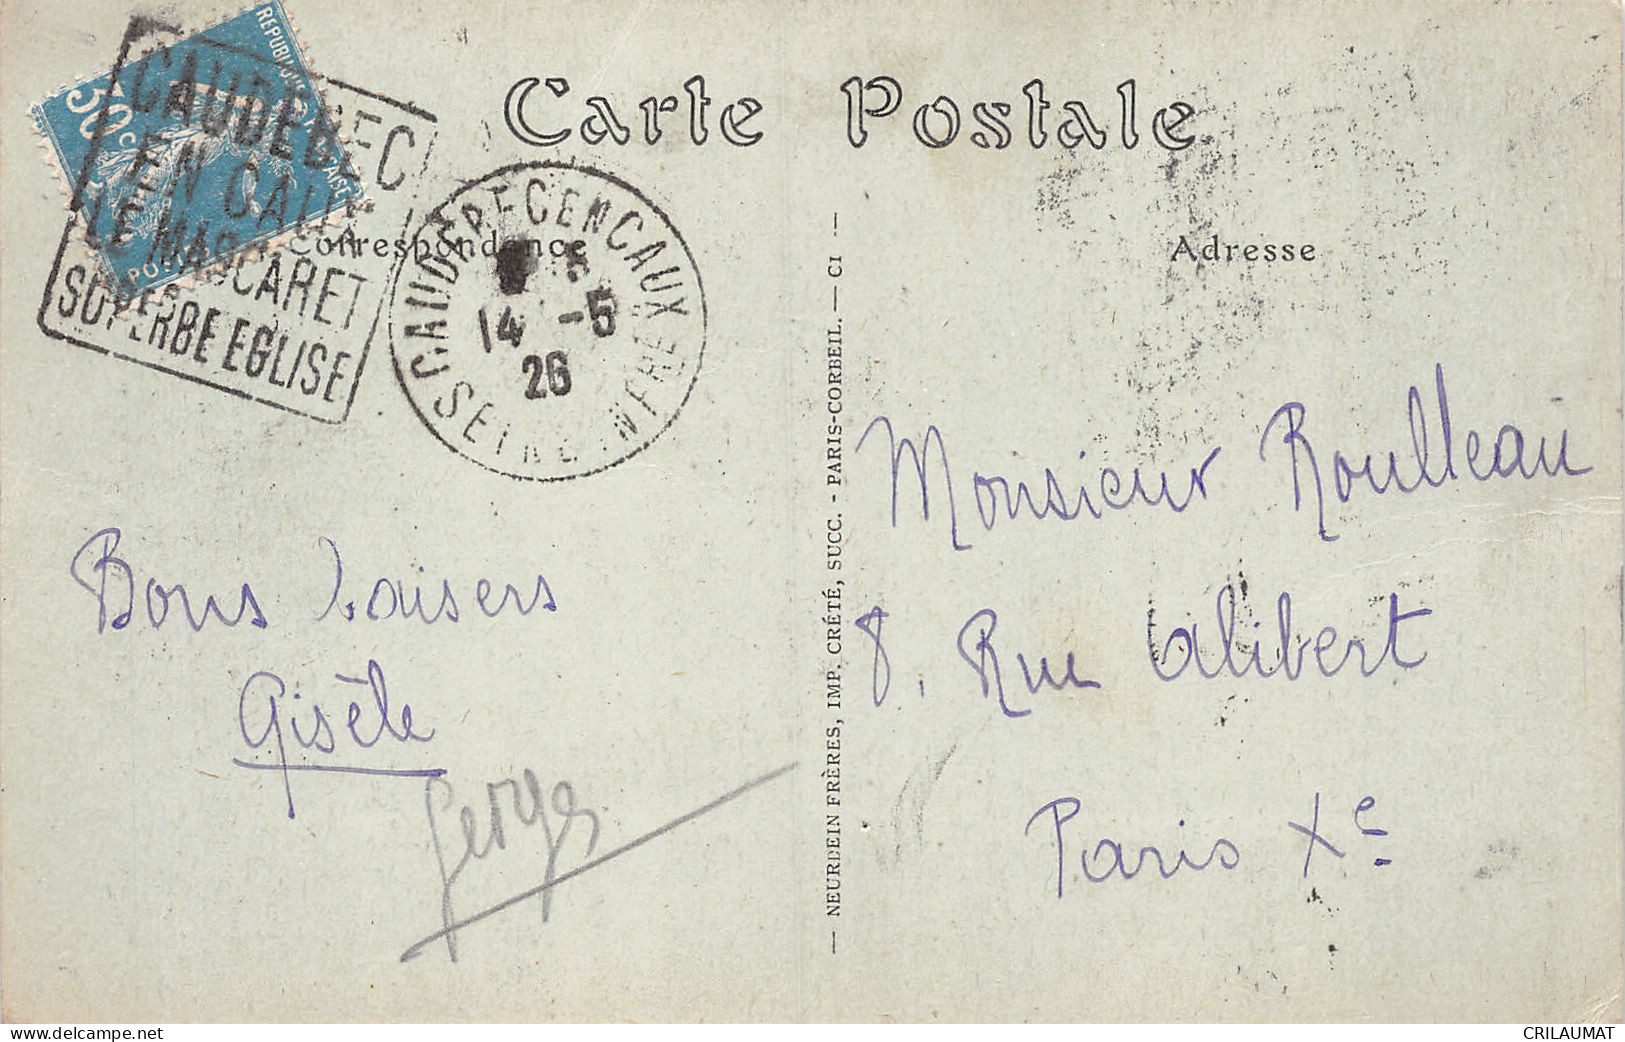 Carte Postale
Correspondance
Adresse
RÉPUBLIQUE FRANÇAISE
30c
POSTES
CAUDEBEC
EN CAUX
LE MASCARET
SUPERBE EGLISE
CAUDEBEC EN CAUX
14 -5
26
SEINE INFRE
Bons baisers
Gisèle
Serge
— NEURDEIN FRÈRES, IMP. CRÉTÉ, SUCC. - PARIS-CORBEIL. — CI —
Monsieur Roulleau
8, Rue Alibert
Paris Xe
www.delcampe.net
CRILAUMAT